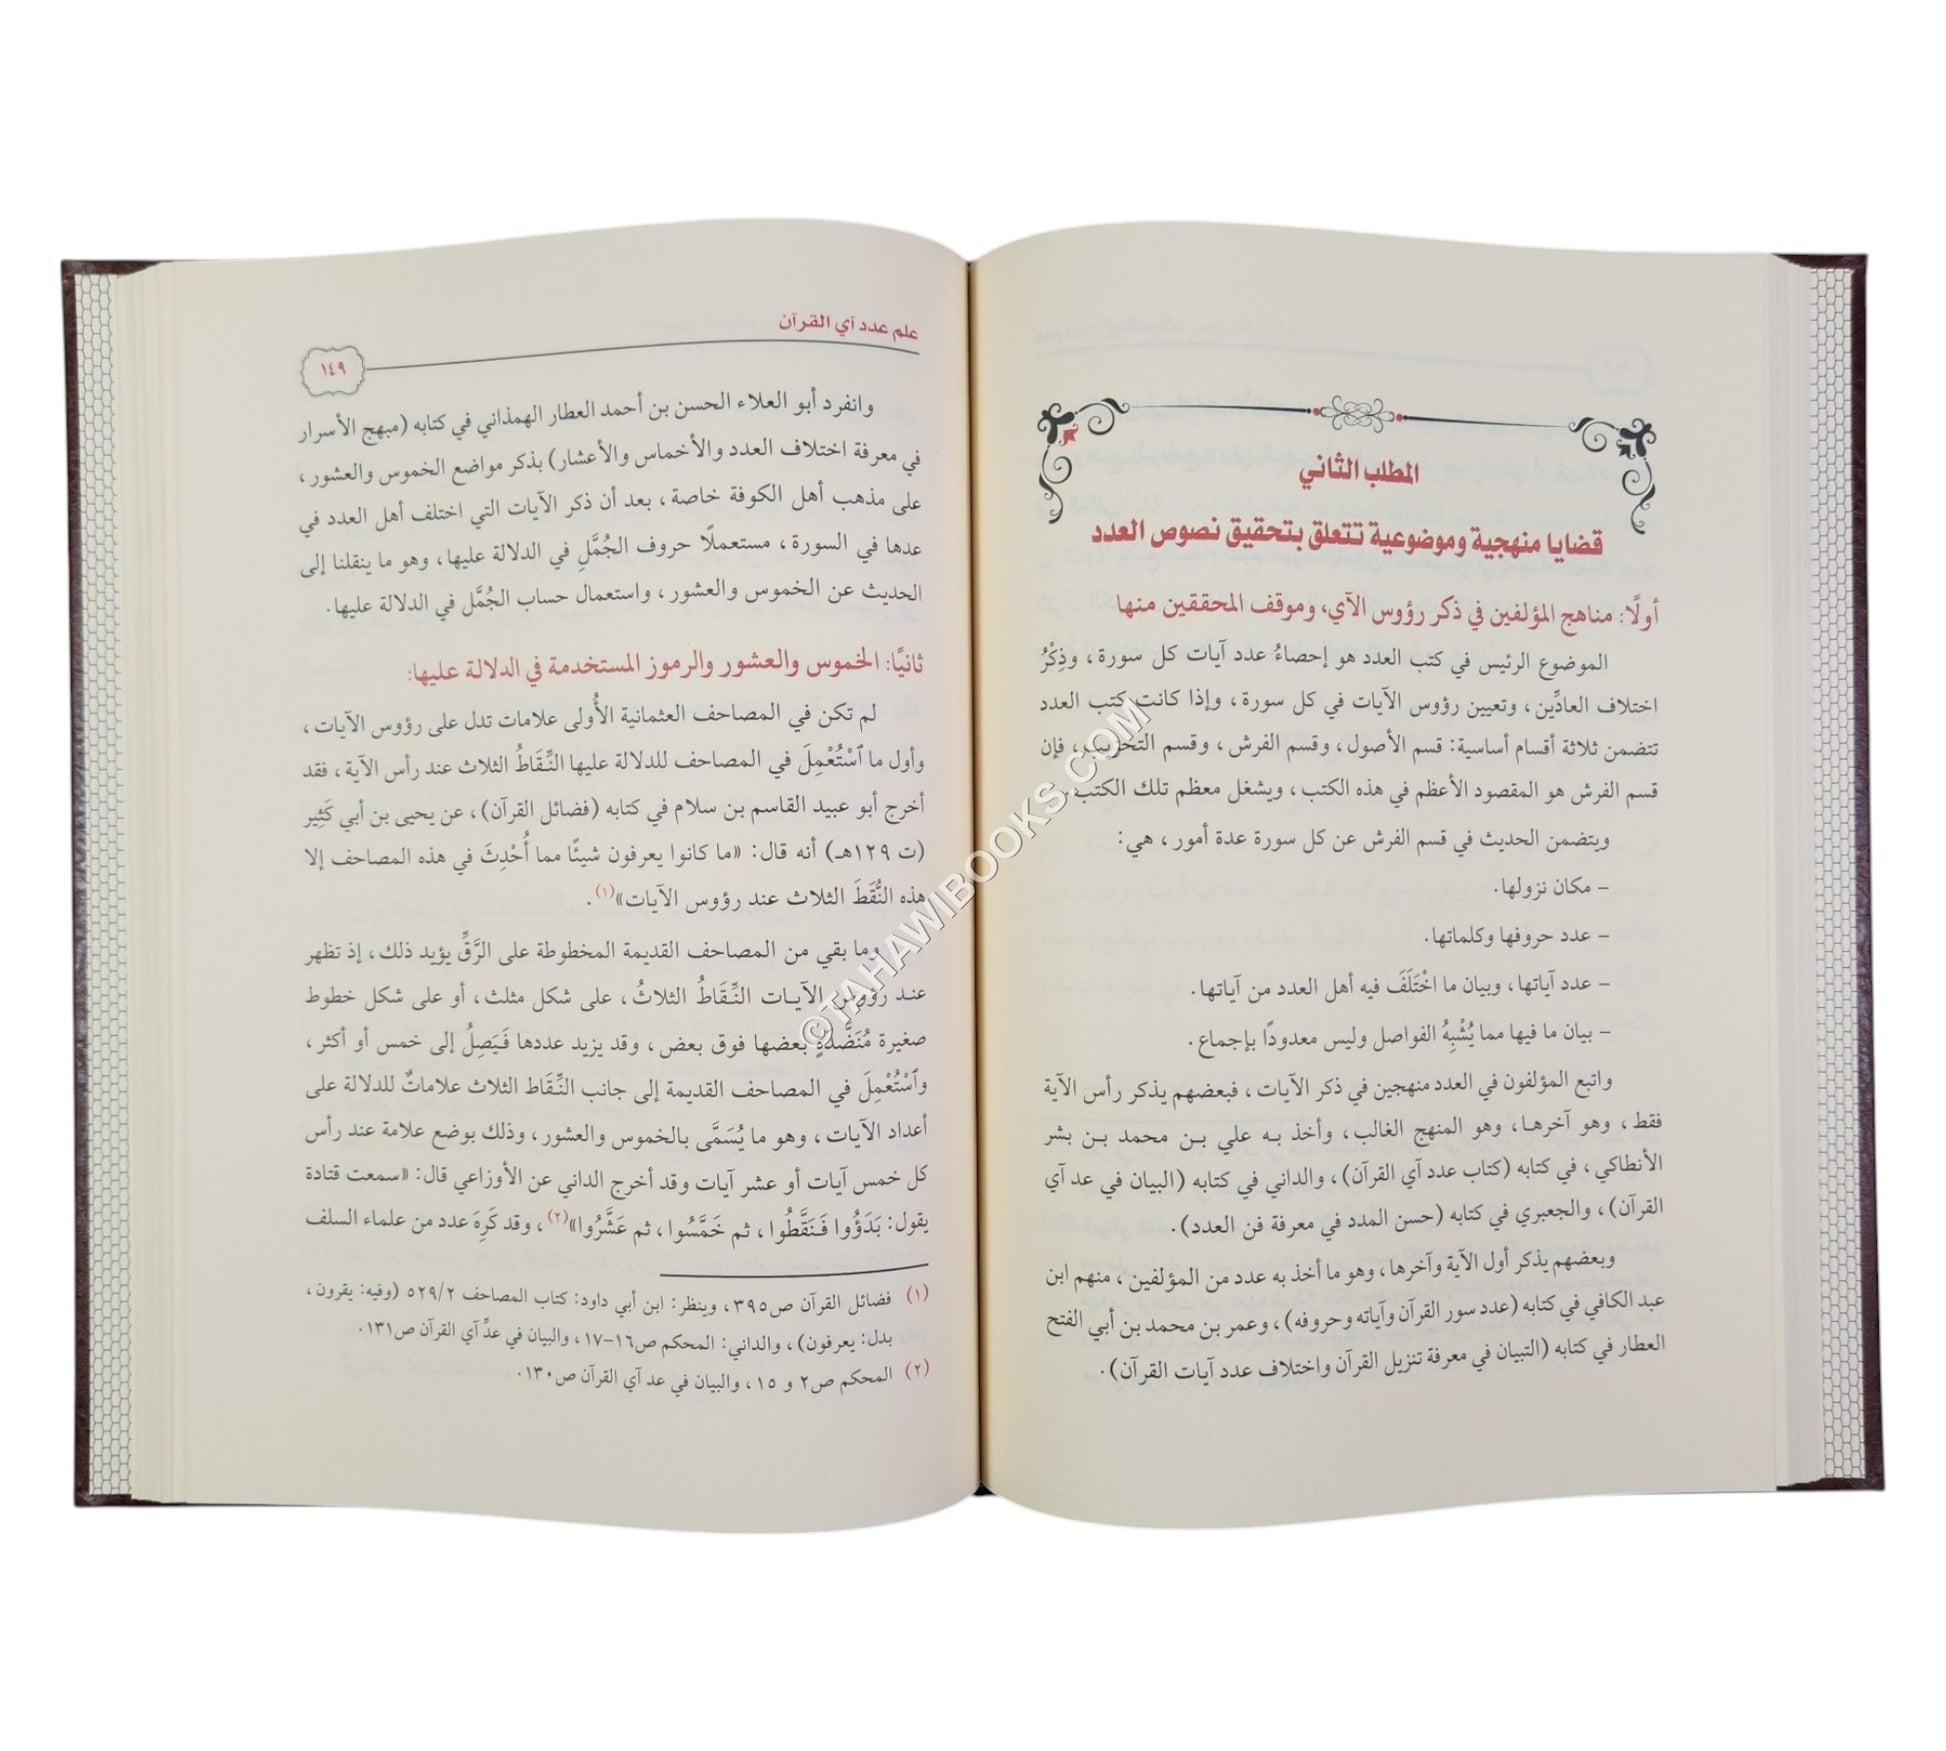 المطلب الثاني
قضايا منهجية وموضوعية تتعلق بتحقيق نصوص العدد
أولًا: مناهج المؤلفين في ذكر رؤوس الآي، وموقف المحققين منها
الموضوع الرئيس في كتب العدد هو إحصاءُ عدد آيات كل سورة، وذِكْرُ
اختلاف العادِّين، وتعيين رؤوس الآيات في كل سورة، وإذا كانت كتب العدد
تتضمن ثلاثة أقسام أساسية: قسم الأصول، وقسم الفرش، وقسم التخريب، فإن
قسم الفرش هو المقصود الأعظم في هذه الكتب، ويشغل معظم تلك الكتب.
ويتضمن الحديث في قسم الفرش عن كل سورة عدة أمور، هي:
- مكان نزولها.
- عدد حروفها وكلماتها.
- عدد آياتها، وبيان ما اخْتَلَفَ فيه أهل العدد من آياتها.
- بيان ما فيها مما يُشْبِهُ الفواصل وليس معدودًا بإجماع.
واتبع المؤلفون في العدد منهجين في ذكر الآيات، فبعضهم يذكر رأس الآية
فقط، وهو آخرها، وهو المنهج الغالب، وأخذ به علي بن محمد بن بشر
الأنطاكي، في كتابه (كتاب عدد آي القرآن)، والداني في كتابه (البيان في عد آي
القرآن)، والجعبري في كتابه (حسن المدد في معرفة فن العدد).
وبعضهم يذكر أول الآية وآخرها، وهو ما أخذ به عدد من المؤلفين، منهم ابن
عبد الكافي في كتابه (عدد سور القرآن وآياته وحروفه)، وعمر بن محمد بن أبي الفتح
العطار في كتابه (التبيان في معرفة تنزيل القرآن واختلاف عدد آيات القرآن).
علم عدد آي القرآن
١٤٩
وانفرد أبو العلاء الحسن بن أحمد العطار الهمذاني في كتابه (مبهج الأسرار
في معرفة اختلاف العدد والأخماس والأعشار) بذكر مواضع الخموس والعشور،
على مذهب أهل الكوفة خاصة، بعد أن ذكر الآيات التي اختلف أهل العدد في
عدها في السورة، مستعملًا حروف الجُمَّلِ في الدلالة عليها، وهو ما ينقلنا إلى
الحديث عن الخموس والعشور، واستعمال حساب الجُمَّل في الدلالة عليها.
ثانيًا: الخموس والعشور والرموز المستخدمة في الدلالة عليها:
لم تكن في المصاحف العثمانية الأُولى علامات تدل على رؤوس الآيات،
وأول ما ٱسْتُعْمِلَ في المصاحف للدلالة عليها النِّقَاطُ الثلاث عند رأس الآية، فقد
أخرج أبو عبيد القاسم بن سلام في كتابه (فضائل القرآن)، عن يحيى بن أبي كَثِير
(ت ١٢٩هـ) أنه قال: «ما كانوا يعرفون شيئًا مما أُحْدِثَ في هذه المصاحف إلا
هذه النُّقَطَ الثلاث عند رؤوس الآيات»(١).
وما بقي من المصاحف القديمة المخطوطة على الرَّقِّ يؤيد ذلك، إذ تظهر
عند رؤوس الآيات النِّقَاطُ الثلاثُ، على شكل مثلث، أو على شكل خطوط
صغيرة مُنَضَّدَةٍ بعضها فوق بعض، وقد يزيد عددها فَيَصِلُ إلى خمس أو أكثر،
وٱسْتُعْمِلَ في المصاحف القديمة إلى جانب النِّقَاط الثلاث علاماتٌ للدلالة على
أعداد الآيات، وهو ما يُسَمَّى بالخموس والعشور، وذلك بوضع علامة عند رأس
كل خمس آيات أو عشر آيات وقد أخرج الداني عن الأوزاعي قال: «سمعت قتادة
يقول: بَدَؤُوا فَنَقَّطُوا، ثم خَمَّسُوا، ثم عَشَّرُوا»(٢)، وقد كَرِهَ عدد من علماء السلف
(١) فضائل القرآن ص٣٩٥، وينظر: ابن أبي داود: كتاب المصاحف ٥٢٩/٢ (وفيه: يقرون،
بدل: يعرفون)، والداني: المحكم ص١٦-١٧، والبيان في عدِّ آي القرآن ص١٣١.
(٢) المحكم ص٢ و ١٥، والبيان في عد آي القرآن ص١٣٠.
©TAHAWIBOOKS.COM